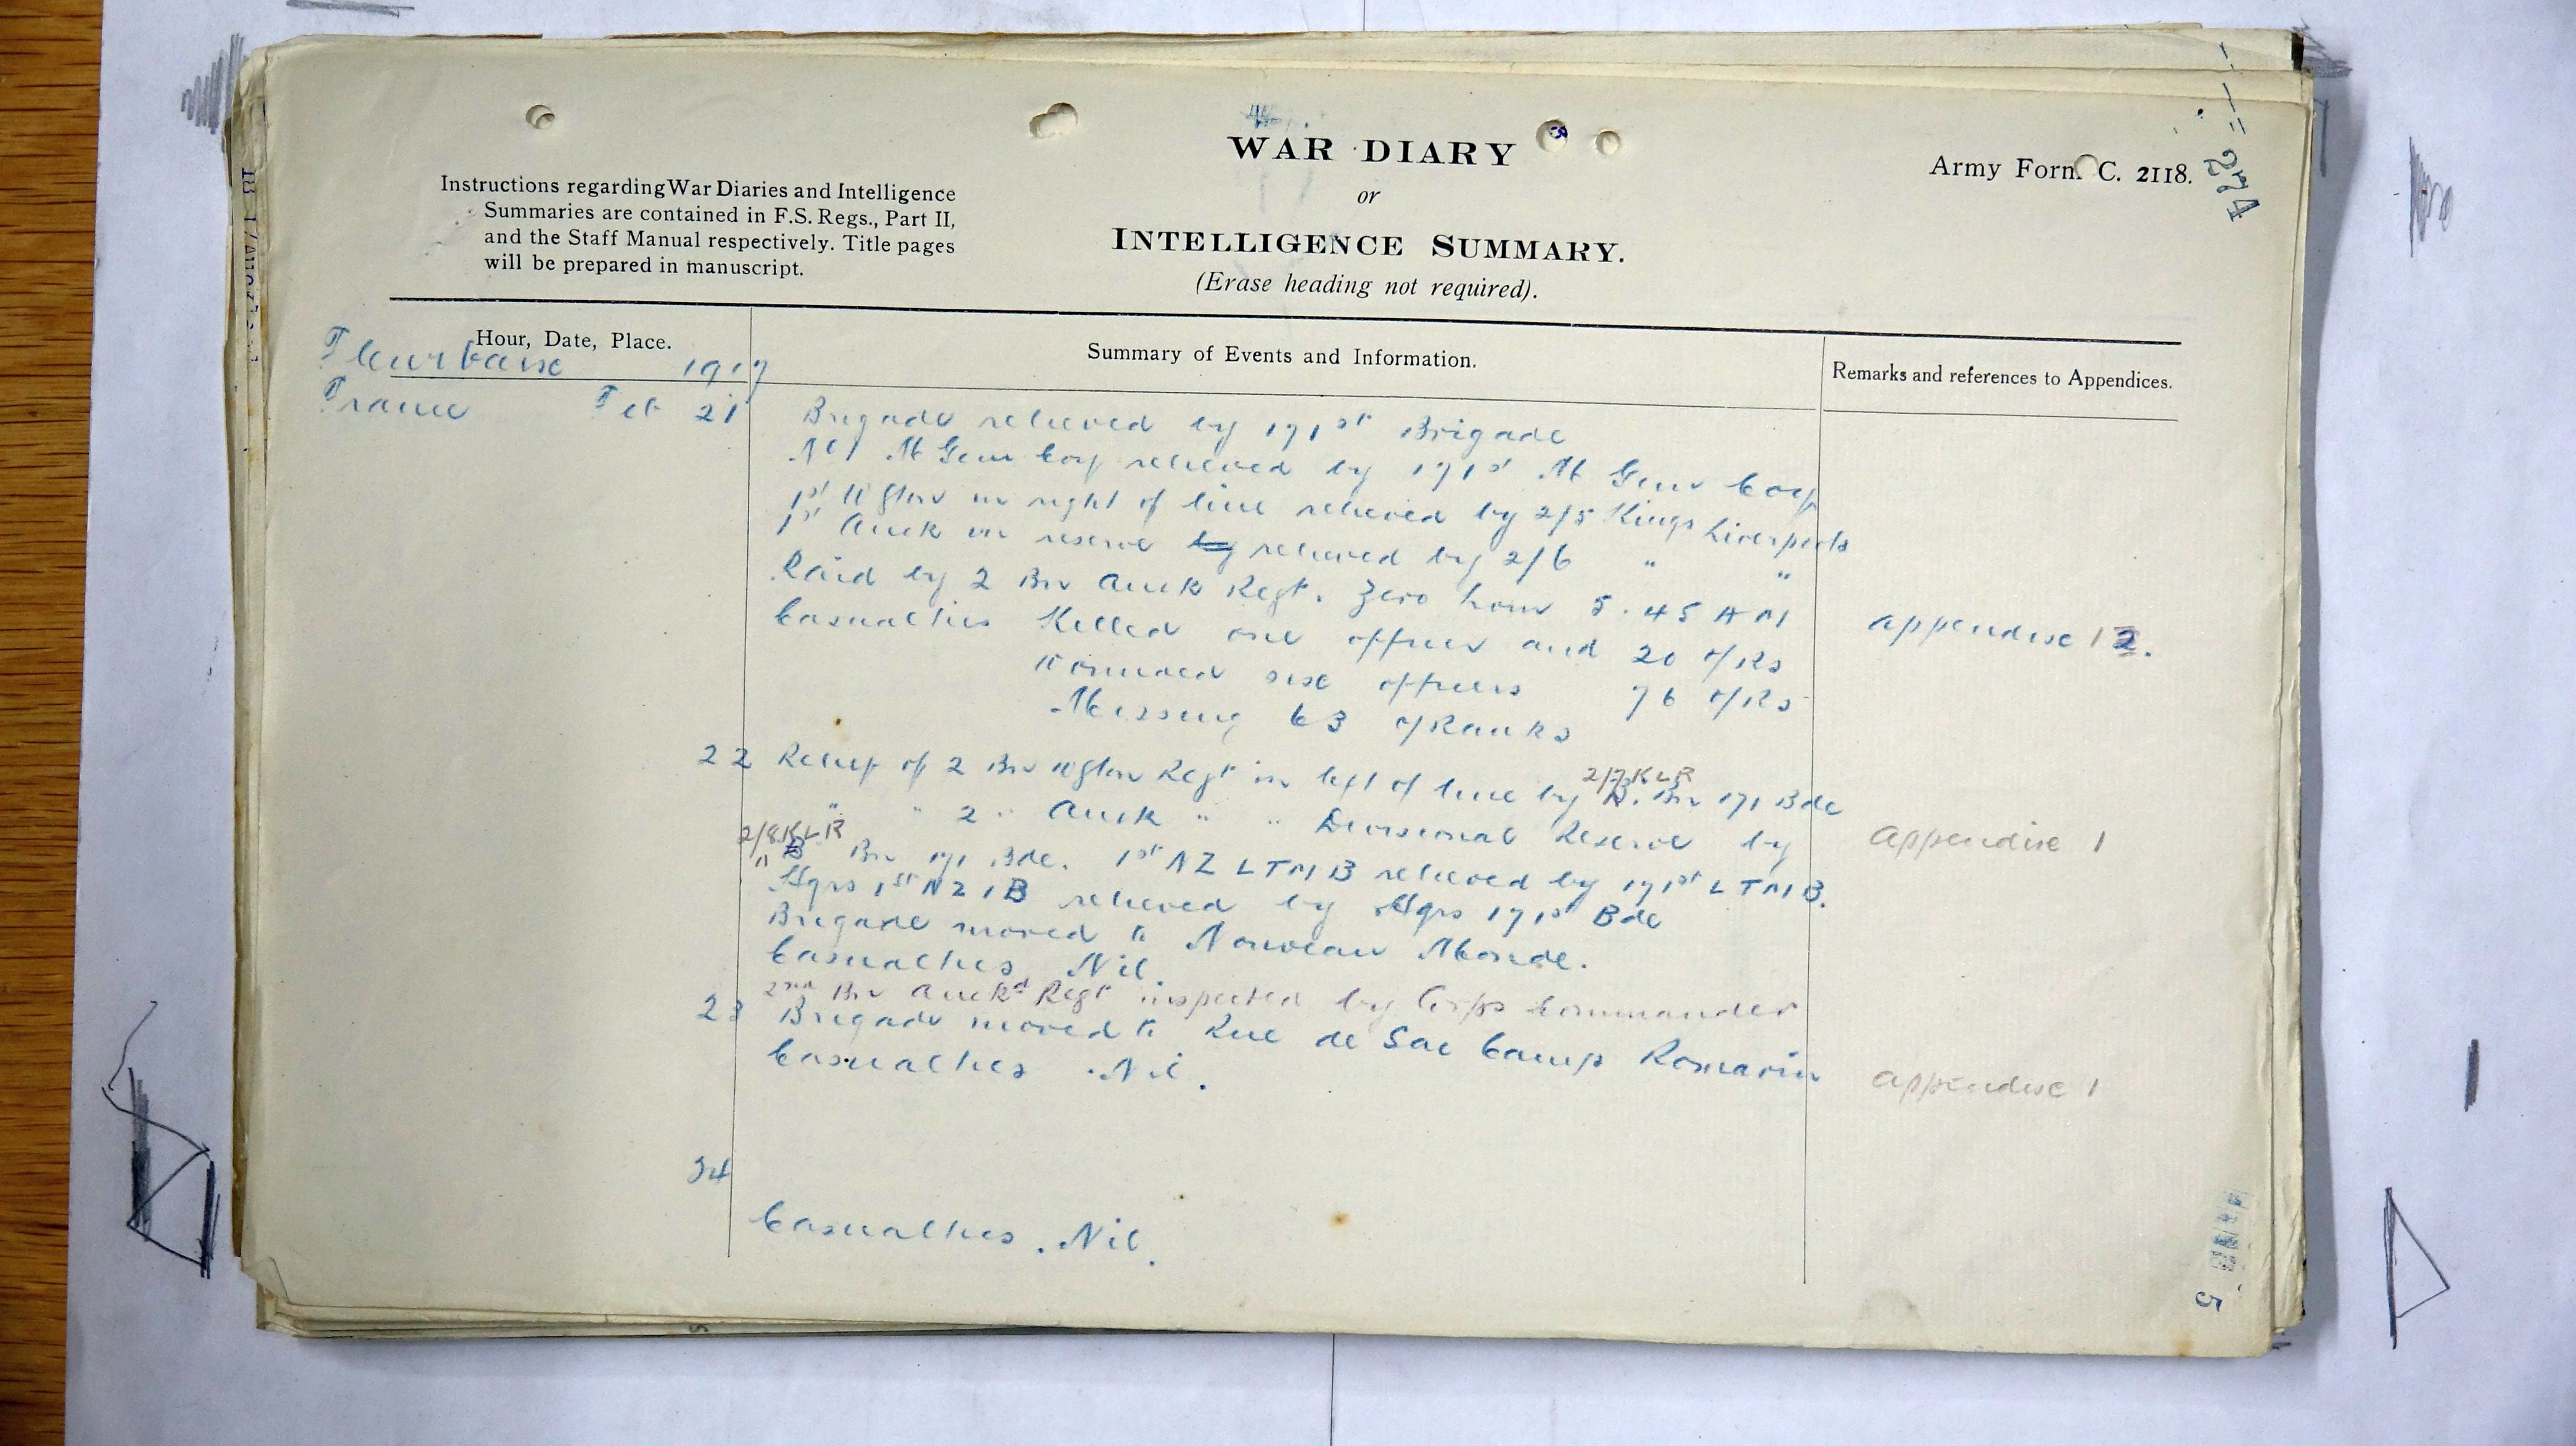 WAR DIARY
or
INTELLIGENCE SUMMARY.
(Erase heading not required).
Instructions regarding War Diaries and Intelligence
Summaries are contained in F.S. Regs., Part II,
and the Staff Manual respectively. Title pages
will be prepared in manuscript.
Army Form C. 2118.
274
Hour, Date, Place.
Summary of Events and Information.
Remarks and references to Appendices.
Fleurbaix 1917
France Feb 21
Brigade relieved by 171st Brigade
No 1 M Gun Coy relieved by 171st M Gun Coy
1st Wgton in right of line relieved by 2/5 Kings Liverpools
1st Auck in reserve by relieved by 2/6 " "
Raid by 2 Bn Auck Regt. Zero hour 5.45 AM
Casualties Killed one officer and 20 o/Rs appendix 12.
Wounded six officers 76 o/Rs
Missing 63 o/Ranks
22 Relief of 2 Bn Wgton Regt in left of line by 2/7 KLR Bn 171 Bde
" " 2 " Auck " " Divisional Reserve by
2/8 KLR
" B Bn 171 Bde. 1st NZ LTMB relieved by 171st LTMB. appendix 1
Hqrs 1st NZIB relieved by Hqrs 171st Bde
Brigade moved to Nouveau Monde.
Casualties Nil.
2nd Bn Auckd Regt inspected by Corps Commander
23 Brigade moved to Rue de Sac Camp Romarin
Casualties . Nil. appendix 1
24
Casualties . Nil.
5